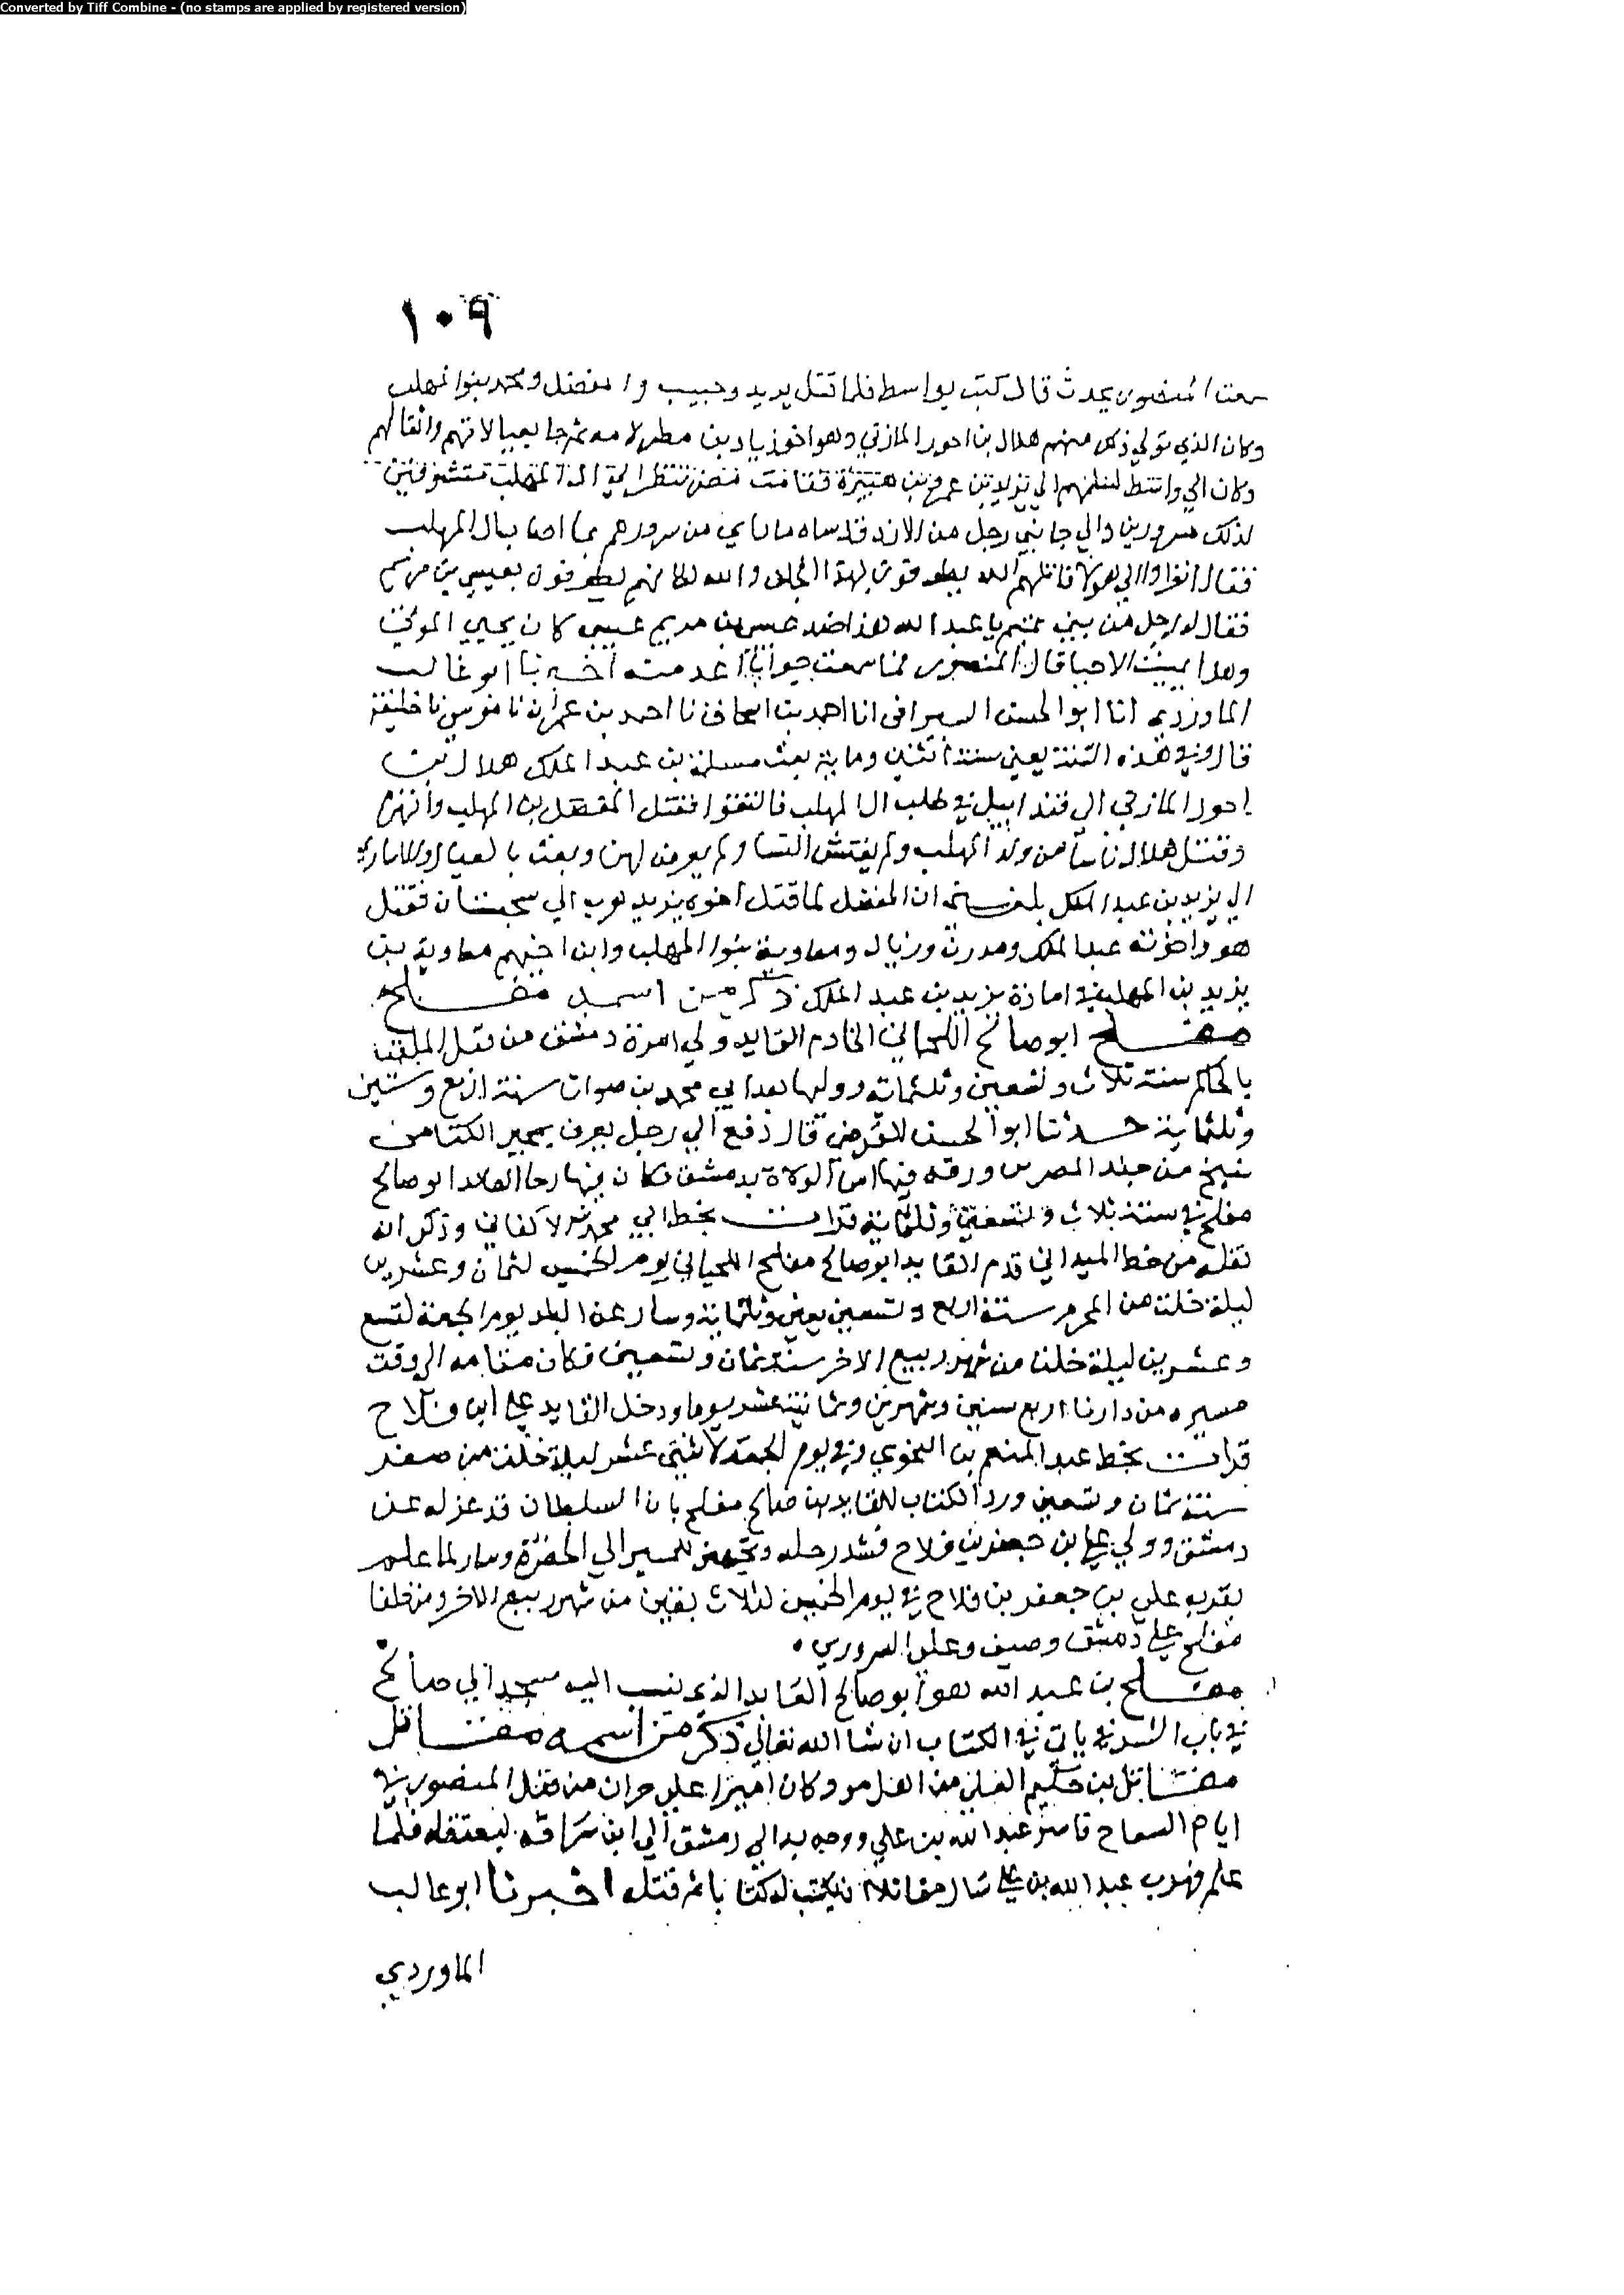 Converted by Tiff Combine - (no stamps are applied by registered version)
١٠٩
سمعت المنصور يحدث قال كنت بواسط فلما قتل يزيد وحبيب والمفضل ومحمد بنوا المهلب
وكان الذي تولي ذلك منهم هلال بن احوز المازني وهو اخو زياد بن مطر لامه ثم جا بعيالاتهم واثقالهم
وكان الي واسط الي يزيد بن عمر بن هبيرة فقامت ننتظر ال المهلب مستشرفين
لذلك مسرورين والي جانبي رجل من الازد قد ساه ما راي من سرورهم بما اصاب ال المهلب
فقال انظروا الي هولا قاتلهم الله يطوفون بهذا والله لكانهم يطوفون بعيسي بن مريم
فقال له رجل من بني تميم يا عبد الله هذا ضد عيسي بن مريم عيسي كان يحيي الموتي
وهذا يميت الاحيا قال المنصور فما سمعت جوابا اخبرنا ابو غالب
الماوردي انا ابو الحسن السيرافي انا احمد بن اسحاق نا احمد بن عمران نا موسي نا خليفة
قال وفي هذه السنة يعني سنة اثنين وماية بعث مسلمة بن عبد الملك هلال بن
احوز المازني الي قندابيل في طلب ال المهلب فالتقوا فقتل المفضل بن المهلب وانهزم
وقتل هلال ناسا من ولد المهلب ولم يفتش النسا ولم يعرض لهن وبعث بالعيال والاساري
الي يزيد بن عبد الملك بلغني ان المفضل لما قتل اخوه يزيد هرب الي سجستان فقتل
هو واخوته عبد الملك ومدرك وزياد ومعاوية بنوا المهلب وابن اخيهم معاوية بن
يزيد بن المهلب في امارة يزيد بن عبد الملك ذكر من اسمه مفلح
مفلح ابو صالح اللحياني الخادم القايد ولي امرة دمشق من قبل الملقب
بالحاكم سنة ثلاث وتسعين وثلثمائه ووليها بعد ابي محمد بن سنة اربع وستين
وثلثماية حدثنا ابو الحسن الفرضي قال دفع الي رجل يعرف الكتامي
شيخ من جند المصريين ورقه فيها اسما الولاة بدمشق فكان فيها القايد ابو صالح
مفلح في سنة ثلاث وتسعين وثلثماية قرات بخط ابي محمد بن الاكفاني وذكر انه
نقله من خط الميداني قدم القايد ابو صالح مفلح اللحياني يوم الخميس لثمان وعشرين
ليلة خلت من المحرم سنة اربع وتسعين يعني وثلثماية وسار عن البلد يوم الجمعة لتسع
وعشرين ليلة خلت من شهر ربيع الاخر سنة ثمان وتسعين فكان مقامه الي وقت
مسيره من دارنا اربع سنين وشهرين وثمانية عشر يوما ودخل القايد علي ابن فلاح
قرات بخط عبد المنعم بن النحوي وفي يوم الجمعة لاثنتي عشر ليلة خلت من صفر
سنة ثمان وتسعين ورد الكتاب للقايد بن صالح مفلح بان السلطان قد عزله عن
دمشق وولي علي بن جعفر بن فلاح فشد رحله وتجهز للمسير الي الحضرة وسار لما علم
بقربه علي بن جعفر بن فلاح في يوم الخميس لثلاث بقين من شهر ربيع الاخر ومن خلفا
مفلح علي دمشق وصيف وعلي السروري
مفلح بن عبد الله هو ابو صالح القايد الذي ينسب اليه مسجد ابي صالح
في باب الشرقي ياتي في الكتاب ان شا الله تعالي ذكر من اسمه مقاتل
مقاتل بن حكيم العكي من اهل مرو وكان اميرا علي حران من قبل المنصور في
ايام السفاح فاسره عبد الله بن علي ووجه به الي دمشق الي ابن سراقة ليعتقله فلما
علم بهرب عبد الله بن علي سال مقاتلا ان يكتب له كتابا ثم قتله اخبرنا ابو غالب
الماوردي